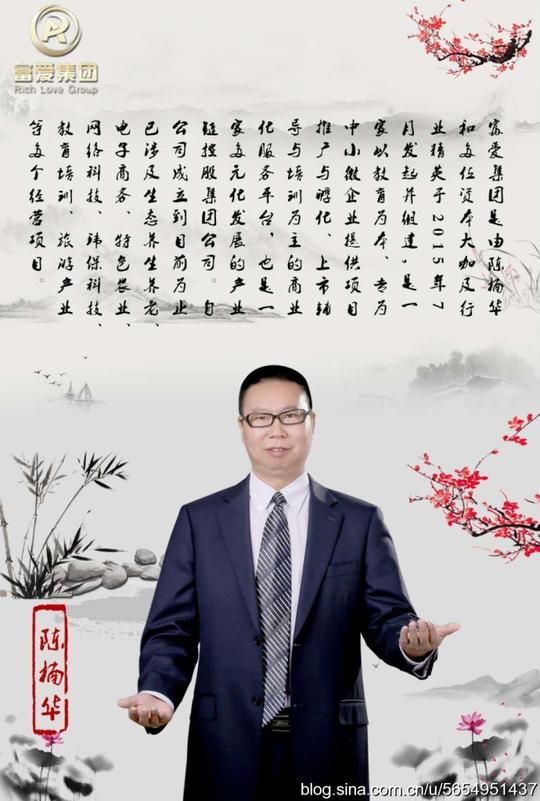 富爱集团
Rich Love Group
富爱集团是由陈楠华
和多位资本大咖及行
业精英于2015年7
月发起并组建。是一
家以教育为本、专为
中小微企业提供项目
推广与孵化、上市辅
导与培训为主的商业
化服务平台，也是一
家多元化发展的产业
链控股集团公司。自
公司成立到目前为止
已涉及生态养生养老、
电子商务、特色农业、
网络科技、环保科技、
教育培训、旅游产业
等多个经营项目。
陈楠华
blog.sina.com.cn/u/5654951437